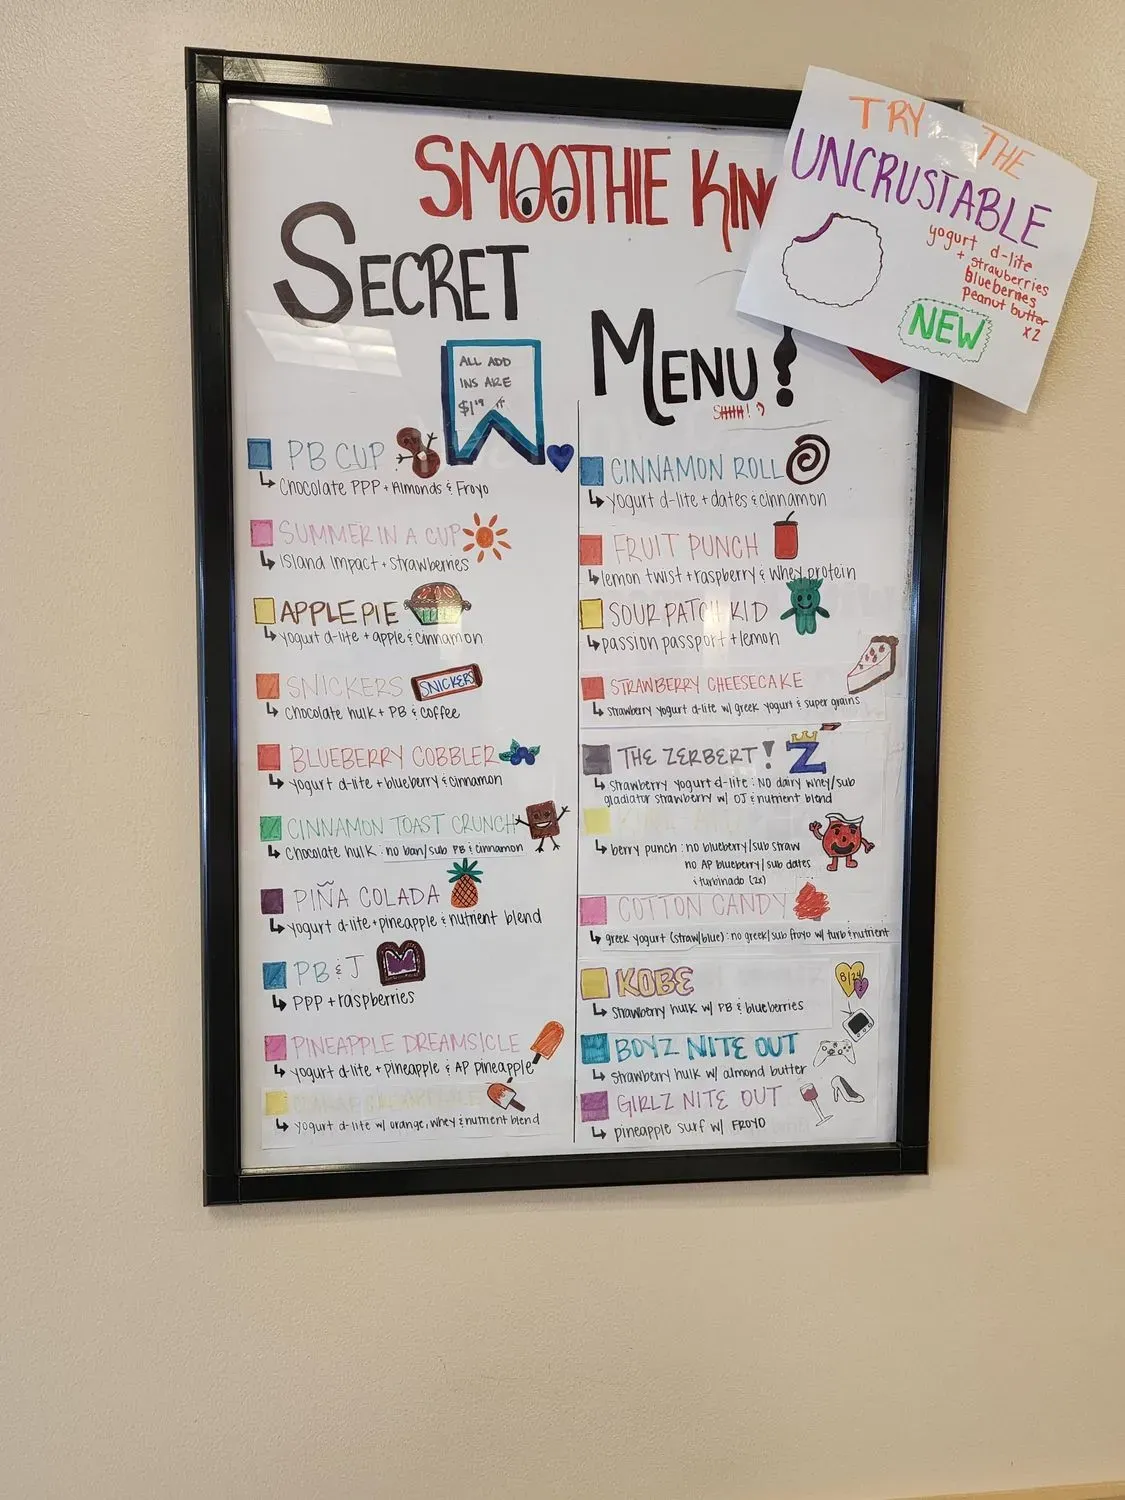 SMOOTHIE KING
SECRET
MENU!
SHHH!
TRY THE
UNCRUSTABLE
yogurt d-lite
+ strawberries
blueberries
peanut butter
x2
NEW
ALL ADD
INS ARE
PB CUP
↳ Chocolate PPP + Almonds & Froyo
SUMMER IN A CUP
↳ Island Impact + strawberries
APPLE PIE
↳ yogurt d-lite + apple & cinnamon
SNICKERS
SNICKERS
↳ Chocolate hulk + PB & Coffee
BLUEBERRY COBBLER
↳ yogurt d-lite + blueberry & cinnamon
CINNAMON TOAST CRUNCH
↳ Chocolate hulk : no ban/sub PB & cinnamon
PIÑA COLADA
↳ yogurt d-lite + pineapple & nutrient blend
PB & J
↳ PPP + raspberries
PINEAPPLE DREAMSICLE
↳ yogurt d-lite + pineapple & AP pineapple
↳ yogurt d-lite w/ orange, whey & nutrient blend
CINNAMON ROLL
↳ yogurt d-lite + dates & cinnamon
FRUIT PUNCH
↳ lemon twist + raspberry & whey protein
SOUR PATCH KID
↳ passion passport + lemon
STRAWBERRY CHEESECAKE
↳ strawberry yogurt d-lite w/ greek yogurt & super grains
THE ZERBERT! Z
↳ strawberry yogurt d-lite : NO dairy whey/sub
gladiator strawberry w/ OJ & nutrient blend
↳ berry punch : no blueberry/sub straw
no AP blueberry/sub dates
& turbinado (2x)
COTTON CANDY
↳ greek yogurt (straw/blue) : no greek/sub froyo w/ turb & nutrient
KOBE
8/24
2
↳ strawberry hulk w/ PB & blueberries
BOYZ NITE OUT
↳ strawberry hulk w/ almond butter
GIRLZ NITE OUT
↳ pineapple surf w/ FROYO